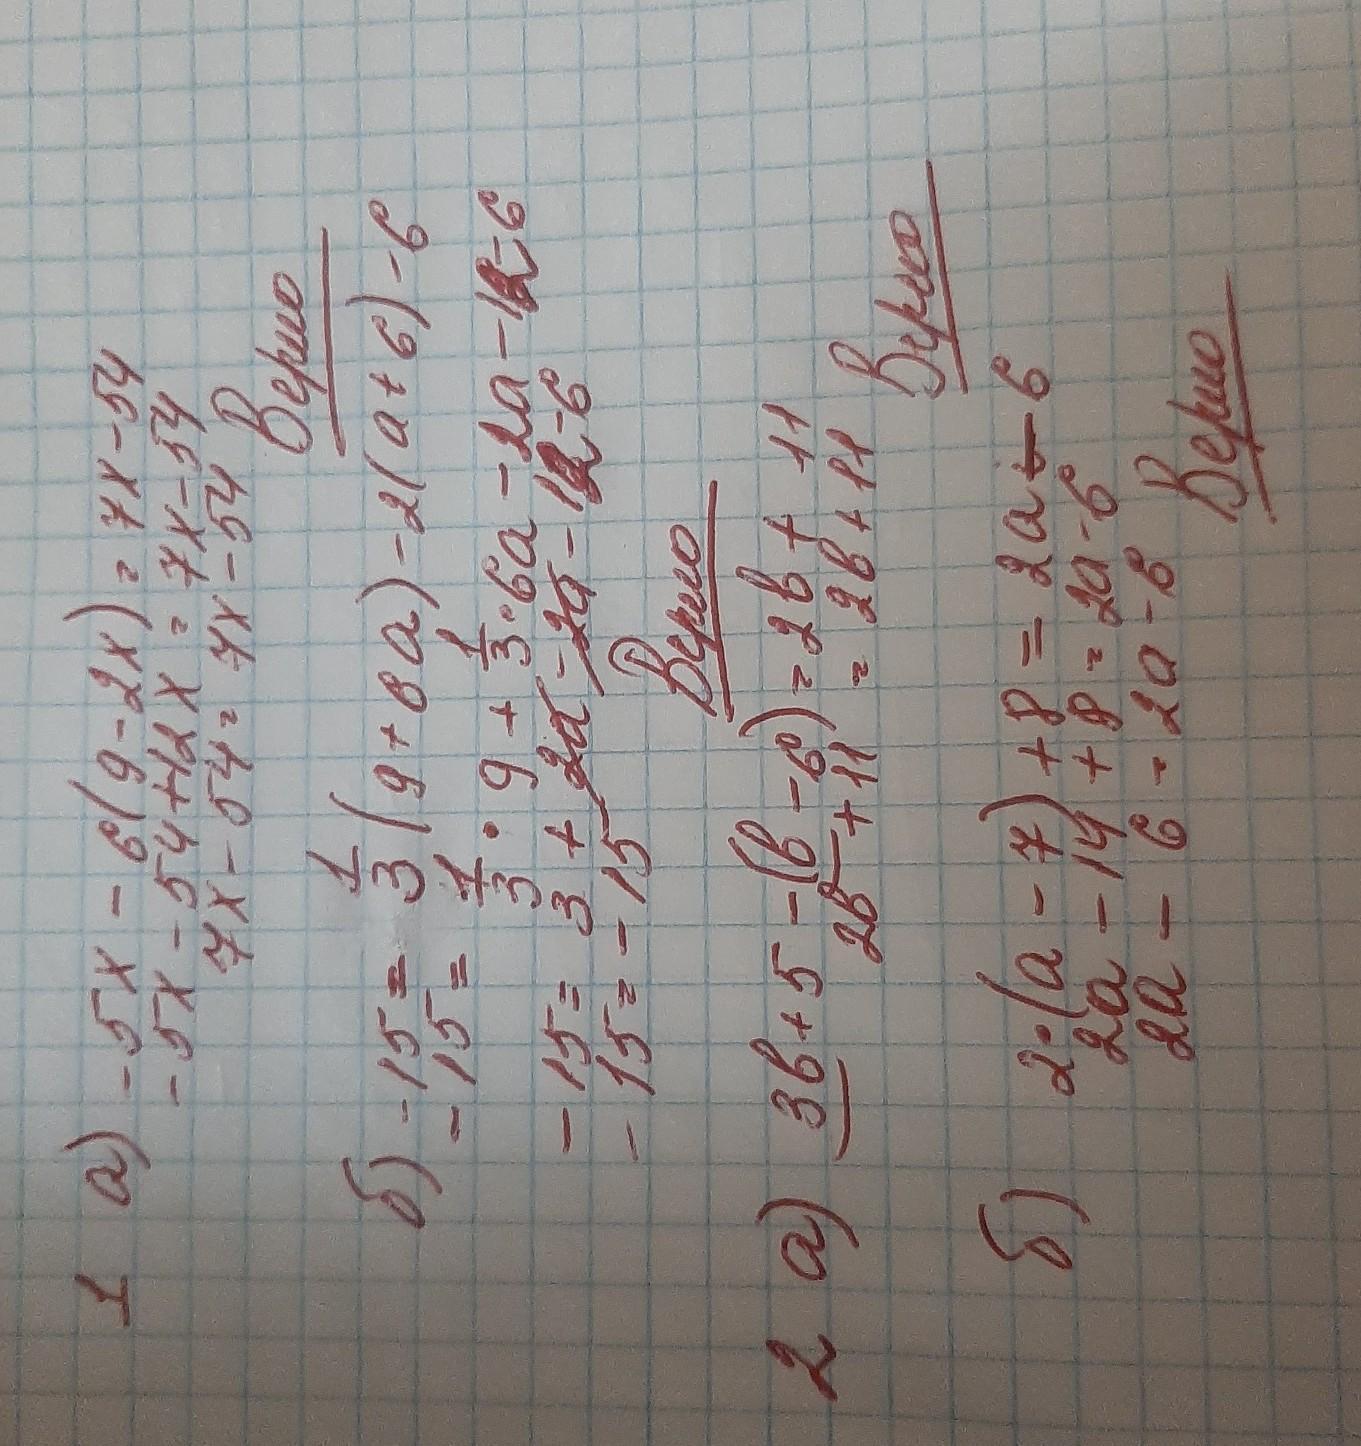 1 а) -5x - 6(9-2x) = 7x-54
-5x-54+12x = 7x-54
7x-54=7x-54
Верно
б) -15= 1/3 (9+6a) -2(a+6) -6
-15= 1/3 · 9 + 1/3 · 6a -2a -12-6
-15= 3+2a-2a-12-6
-15=-15
Верно
2 а) 3b+5-(b-6) =2b+11
2b+11 = 2b+11
Верно
б) 2·(a-7)+8 = 2a-6
2a-14+8=2a-6
2a-6=2a-6
Верно